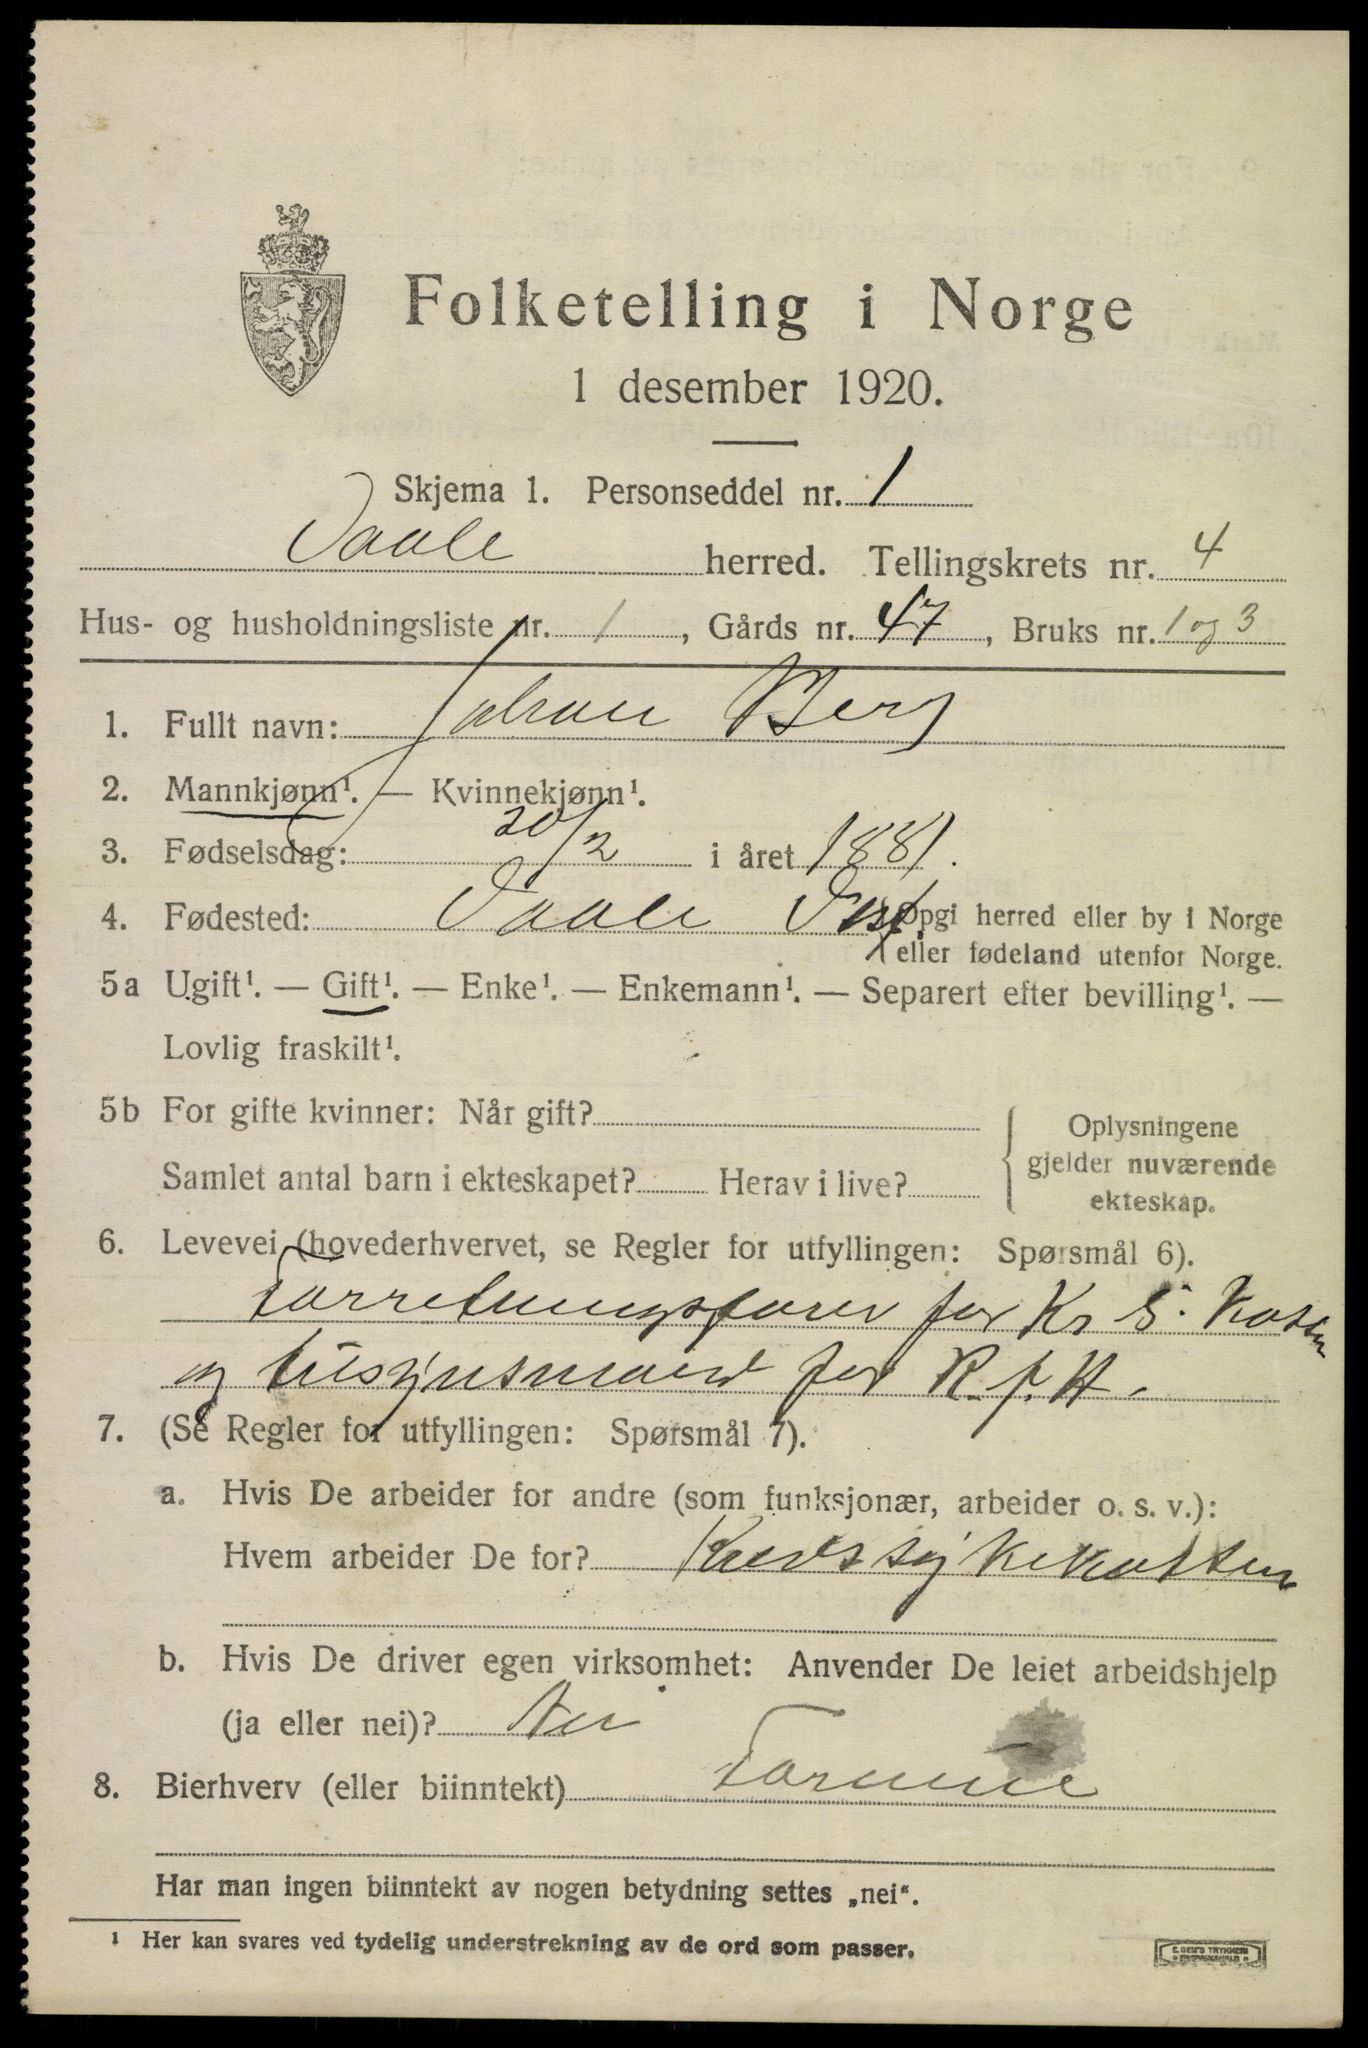 Folketelling i Norge
1 desember 1920.
Skjema 1. Personseddel nr. 1
Vaale herred. Tellingskrets nr. 4
Hus- og husholdningsliste nr. 1, Gårds nr. 47, Bruks nr. 1 og 3
1. Fullt navn: Johan Berg
2. Mannkjønn¹. — Kvinnekjønn¹.
3. Fødselsdag: 20/2 i året 1881.
4. Fødested: Vaale Vestf. { Opgi herred eller by i Norge
eller fødeland utenfor Norge.
5a Ugift¹. — Gift¹. — Enke¹. — Enkemann¹. — Separert efter bevilling¹. —
Lovlig fraskilt¹.
5b For gifte kvinner: Når gift?
Samlet antal barn i ekteskapet? Herav i live?
Oplysningene
gjelder nuværende
ekteskap.
6. Levevei (hovederhvervet, se Regler for utfyllingen: Spørsmål 6).
Forretningsfører for Kr S. Kassen
og tilsynsmand for R.f.H.
7. (Se Regler for utfyllingen: Spørsmål 7).
a. Hvis De arbeider for andre (som funksjonær, arbeider o. s. v.):
Hvem arbeider De for? Kredssykekassen
b. Hvis De driver egen virksomhet: Anvender De leiet arbeidshjelp
(ja eller nei)? Nei
8. Bierhverv (eller biinntekt)
Har man ingen biinntekt av nogen betydning settes „nei“.
¹ Her kan svares ved tydelig understrekning av de ord som passer.